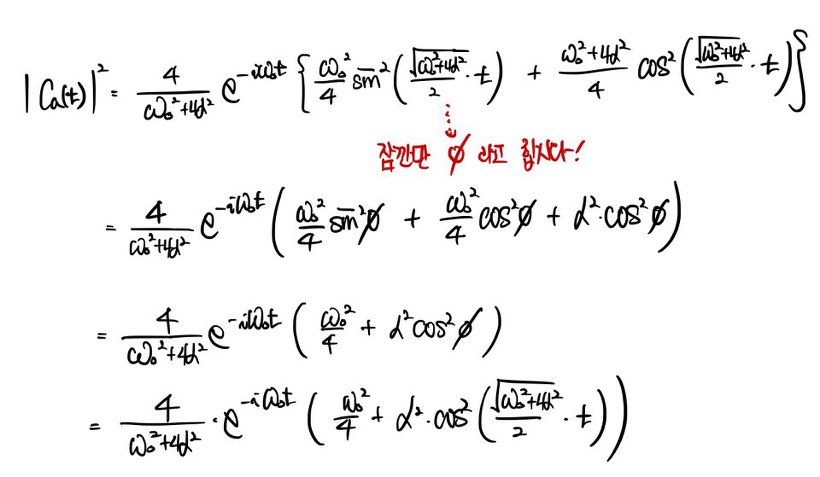 |Ca(t)|² = 4/(ω₀²+4α²) e^(-iω₀t) { ω₀²/4 sin²(√(ω₀²+4α²)/2 · t) + (ω₀²+4α²)/4 cos²(√(ω₀²+4α²)/2 · t) }
잠깐만 ∅ 라고 합시다!
= 4/(ω₀²+4α²) e^(-iω₀t) ( ω₀²/4 sin²∅ + ω₀²/4 cos²∅ + α²·cos²∅ )
= 4/(ω₀²+4α²) e^(-iω₀t) ( ω₀²/4 + α²cos²∅ )
= 4/(ω₀²+4α²) · e^(-iω₀t) ( ω₀²/4 + α²·cos²(√(ω₀²+4α²)/2 · t) )